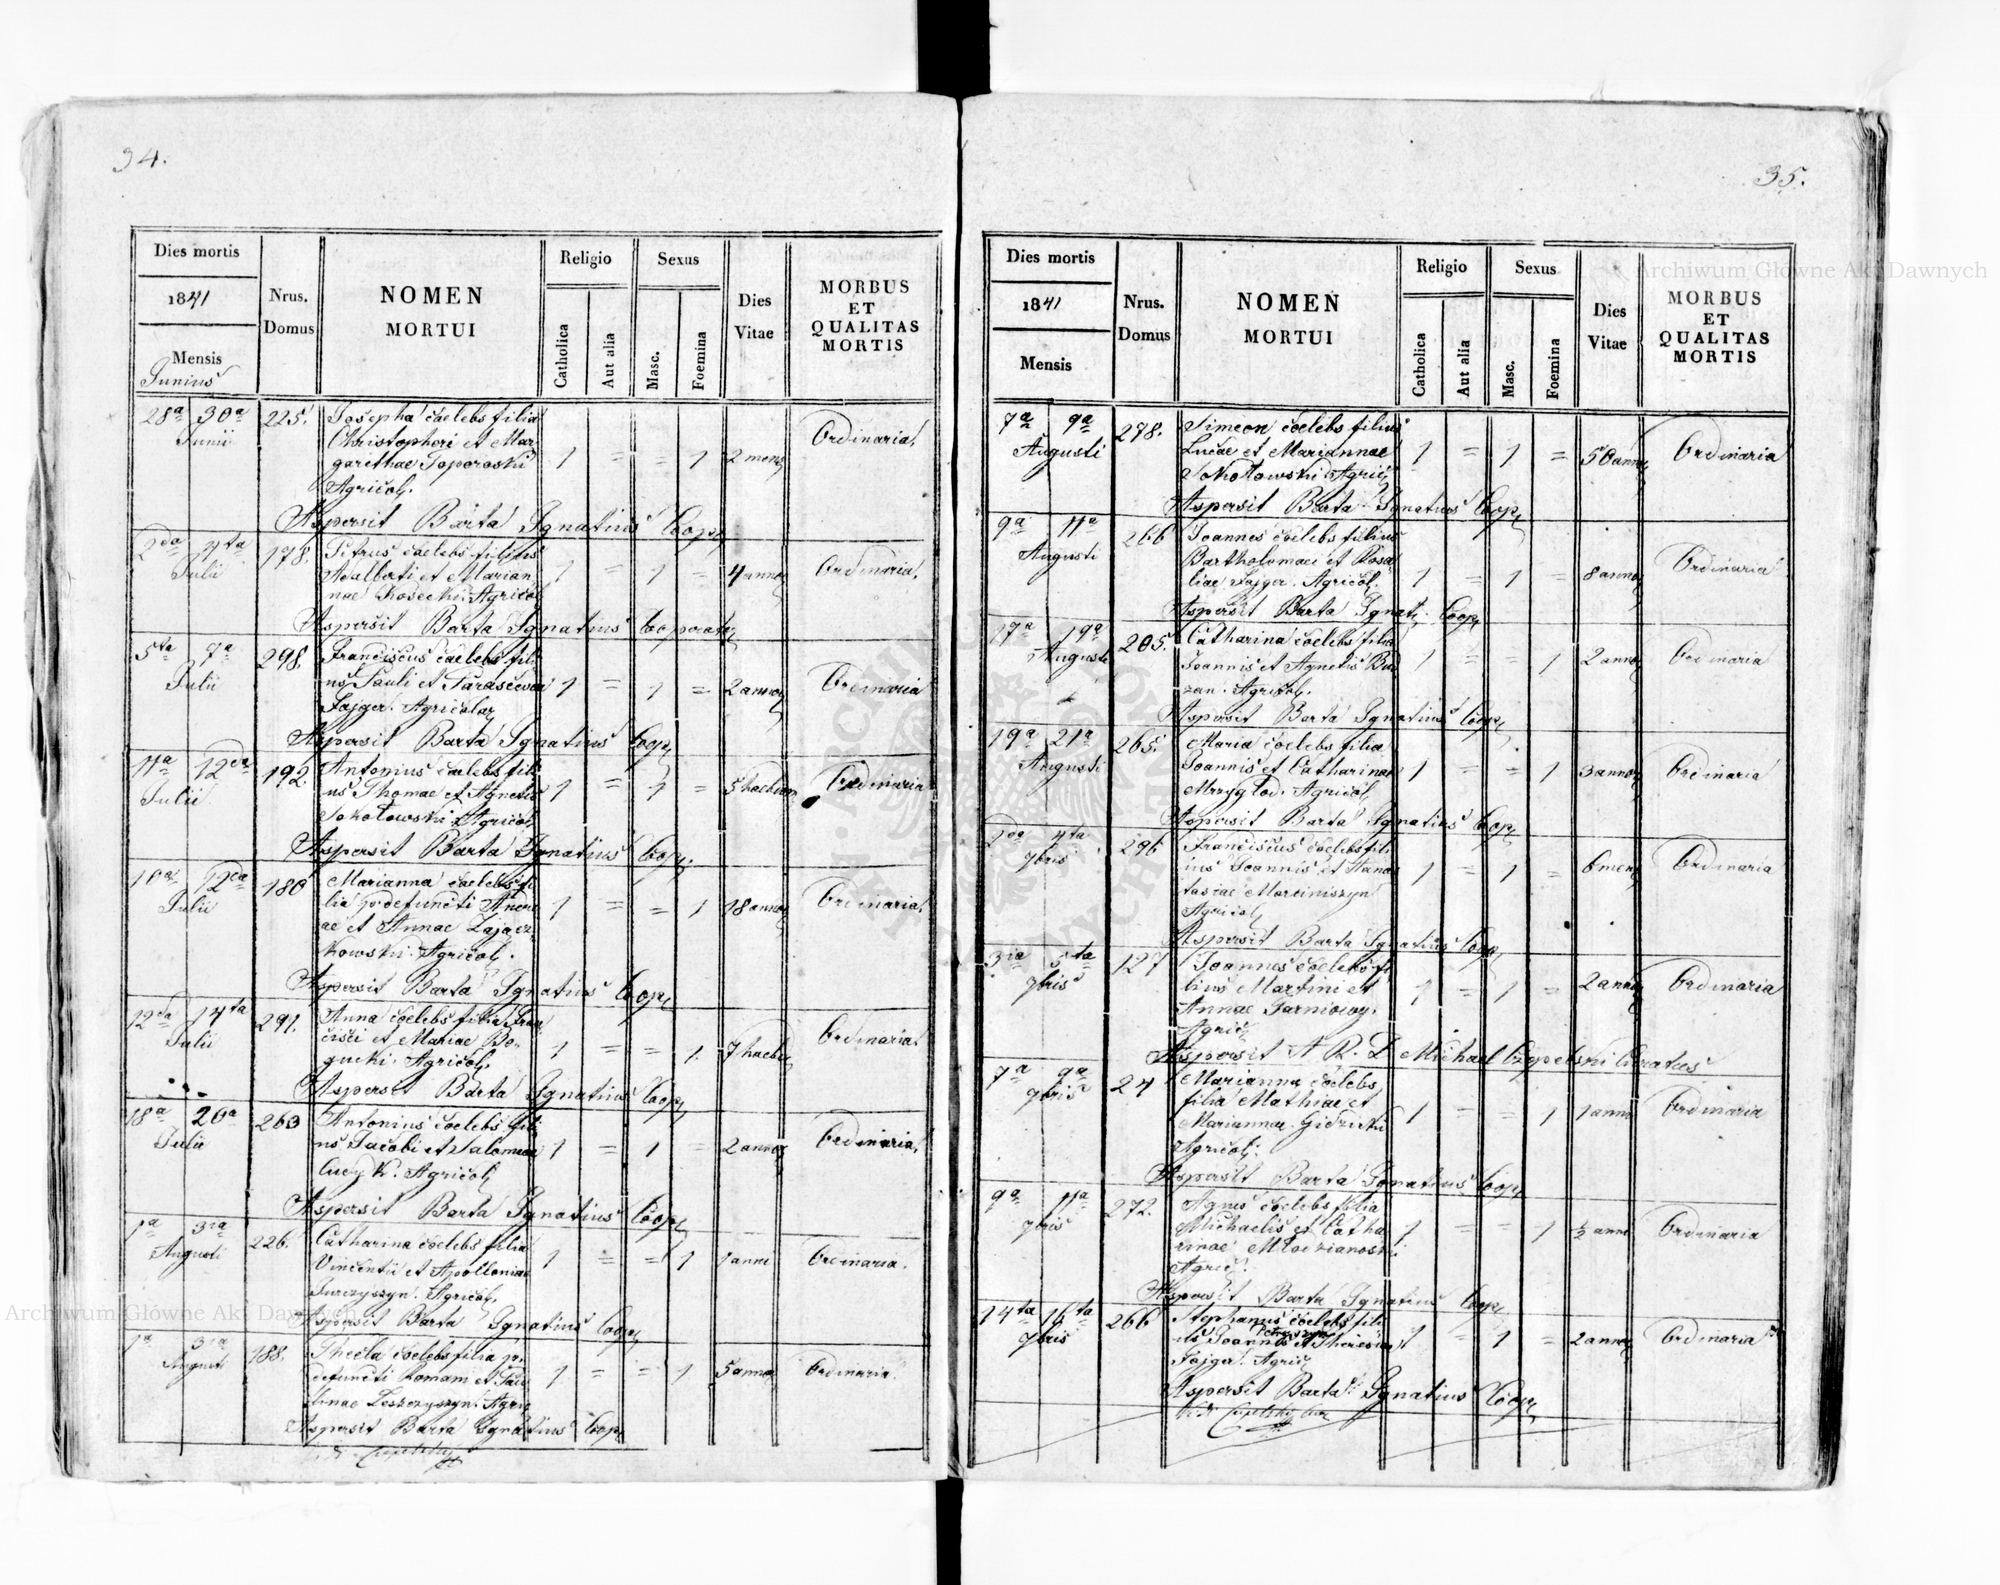 34.
Dies mortis
1841
Mensis
Junius
Nrus.
Domus
NOMEN
MORTUI
Religio
Catholica
Aut alia
Sexus
Masc.
Foemina
Dies
Vitae
MORBUS
ET
QUALITAS
MORTIS
28a 30a 225. Josepha coelebs filia
Junii Christophori et Mar- Ordinaria.
garethae Toporoski 1 = = 1 2 mens
Agricol.
Aspersit Barta Ignatius Coop
2da 4ta 178. Petrus caelebs filius
Julii Adalberti et Marian- 1 = 1 = 4 annor Ordinaria.
nae Kosecki Agricol
Aspersit Barta Ignatius Cooperator
5ta 7a 298. Franciscus caelebs fili-
Julii us Pauli et Parascevae 1 = 1 = 2 annor Ordinaria
Fajger. Agricolar
Aspersit Barta Ignatius Coop
11a 12da 192. Antonius caelebs fili-
Julii us Thomae et Agnetis 1 = 1 = 5 hebdom Ordinaria
Sokołowski Agricol
Aspersit Barta Ignatius Coop.
10a 12da 180 Marianna caelebs fi-
Julii lia defuncti Andre- 1 = = 1 18 annor Ordinaria.
ae et Annae Zającz-
kowski. Agricol.
Aspersit Barta Ignatius Coop
12da 14ta 291. Anna coelebs filia Fran-
Julii cisci et Mariae Bo- Ordinaria.
gucki. Agricol. 1 = = 1. 7 haebd
Aspersit Barta Ignatius Coop
18a 20a 263 Antonius coelebs fili-
Julii us Jacobi et Salomeae 1 = 1 = 2 annor Ordinaria.
Cucyk. Agricol
Aspersit Barta Ignatius Coop
1a 3ia 226. Catharina coelebs filia
Augusti Vincentii et Apolloniae 1 = = 1 1 anni Ordinaria.
Jurczyszyn. Agricol.
Aspersit Barta Ignatius Coop
1a 3ia 188. Thecla coelebs filia
Augusti defuncti Romani et Pau- 1 = = 1 5 anno Ordinaria.
linae Leszczyszyn. Agric
Aspersit Barta Ignatius Coop
35.
Dies mortis
1841
Mensis
Nrus.
Domus
NOMEN
MORTUI
Religio
Catholica
Aut alia
Sexus
Masc.
Foemina
Dies
Vitae
MORBUS
ET
QUALITAS
MORTIS
7a 9a 278. Simeon coelebs filius
Augusti Lucae et Mariannae 1 = 1 = 50 annor Ordinaria
Agric
Aspersit Barta Ignatius Coop
9a 11a 266 Joannes coelebs filius
Augusti Bartholomaei et Rosa- Ordinaria
liae Fajger. Agricol. 1 = 1 = 8 annor
Aspersit Barta Ignati Coop
17a 19a 205. Catharina coelebs filia
Augusti Joannis et Agnetis Bu- 1 = = 1 2 annor Ordinaria
zan. Agricol.
Aspersit Barta Ignatius Coop
19a 21a 265. Maria coelebs filia
Augusti Joannis et Catharinae 1 = = 1 3 annor Ordinaria
Mrzygłod. Agricol
Aspersit Barta Ignatius Coop
2da 4ta 296 Franciscus coelebs fili-
7bris ius Joannis et Hanas- 1 = 1 = 6 mens Ordinaria
tasiae Marciniszyn
Agricol
Aspersit Barta Ignatius Coop
3ia 5ta 127 Joannes coelebs fi-
7bris lius Martini et 1 = 1 = 2 annor Ordinaria
Annae Tarnowy.
Agric
Aspersit A. R. D. Michael Curatus
7a 9a 24 Marianna coelebs
7bris filia Mathiae et 1 = = 1 1 anni Ordinaria
Mariannae
Agricol.
Aspersit Barta Ignatius Coop
9a 11a 272. Agnes coelebs filia
7bris Michaelis et Catha- 1 = = 1 1/2 anni Ordinaria
rinae Młodzianoski
Agric.
Aspersit Barta Ignatius Coop
14ta 16ta 266 Stephanus coelebs fili-
7bris us Joannis et Theresiae 1 = 1 = 2 annor Ordinaria
Fajger. Agric
Aspersit Barta Ignatius Coop
Archiwum Główne Akt Dawnych
Archiwum Główne Akt Dawnych